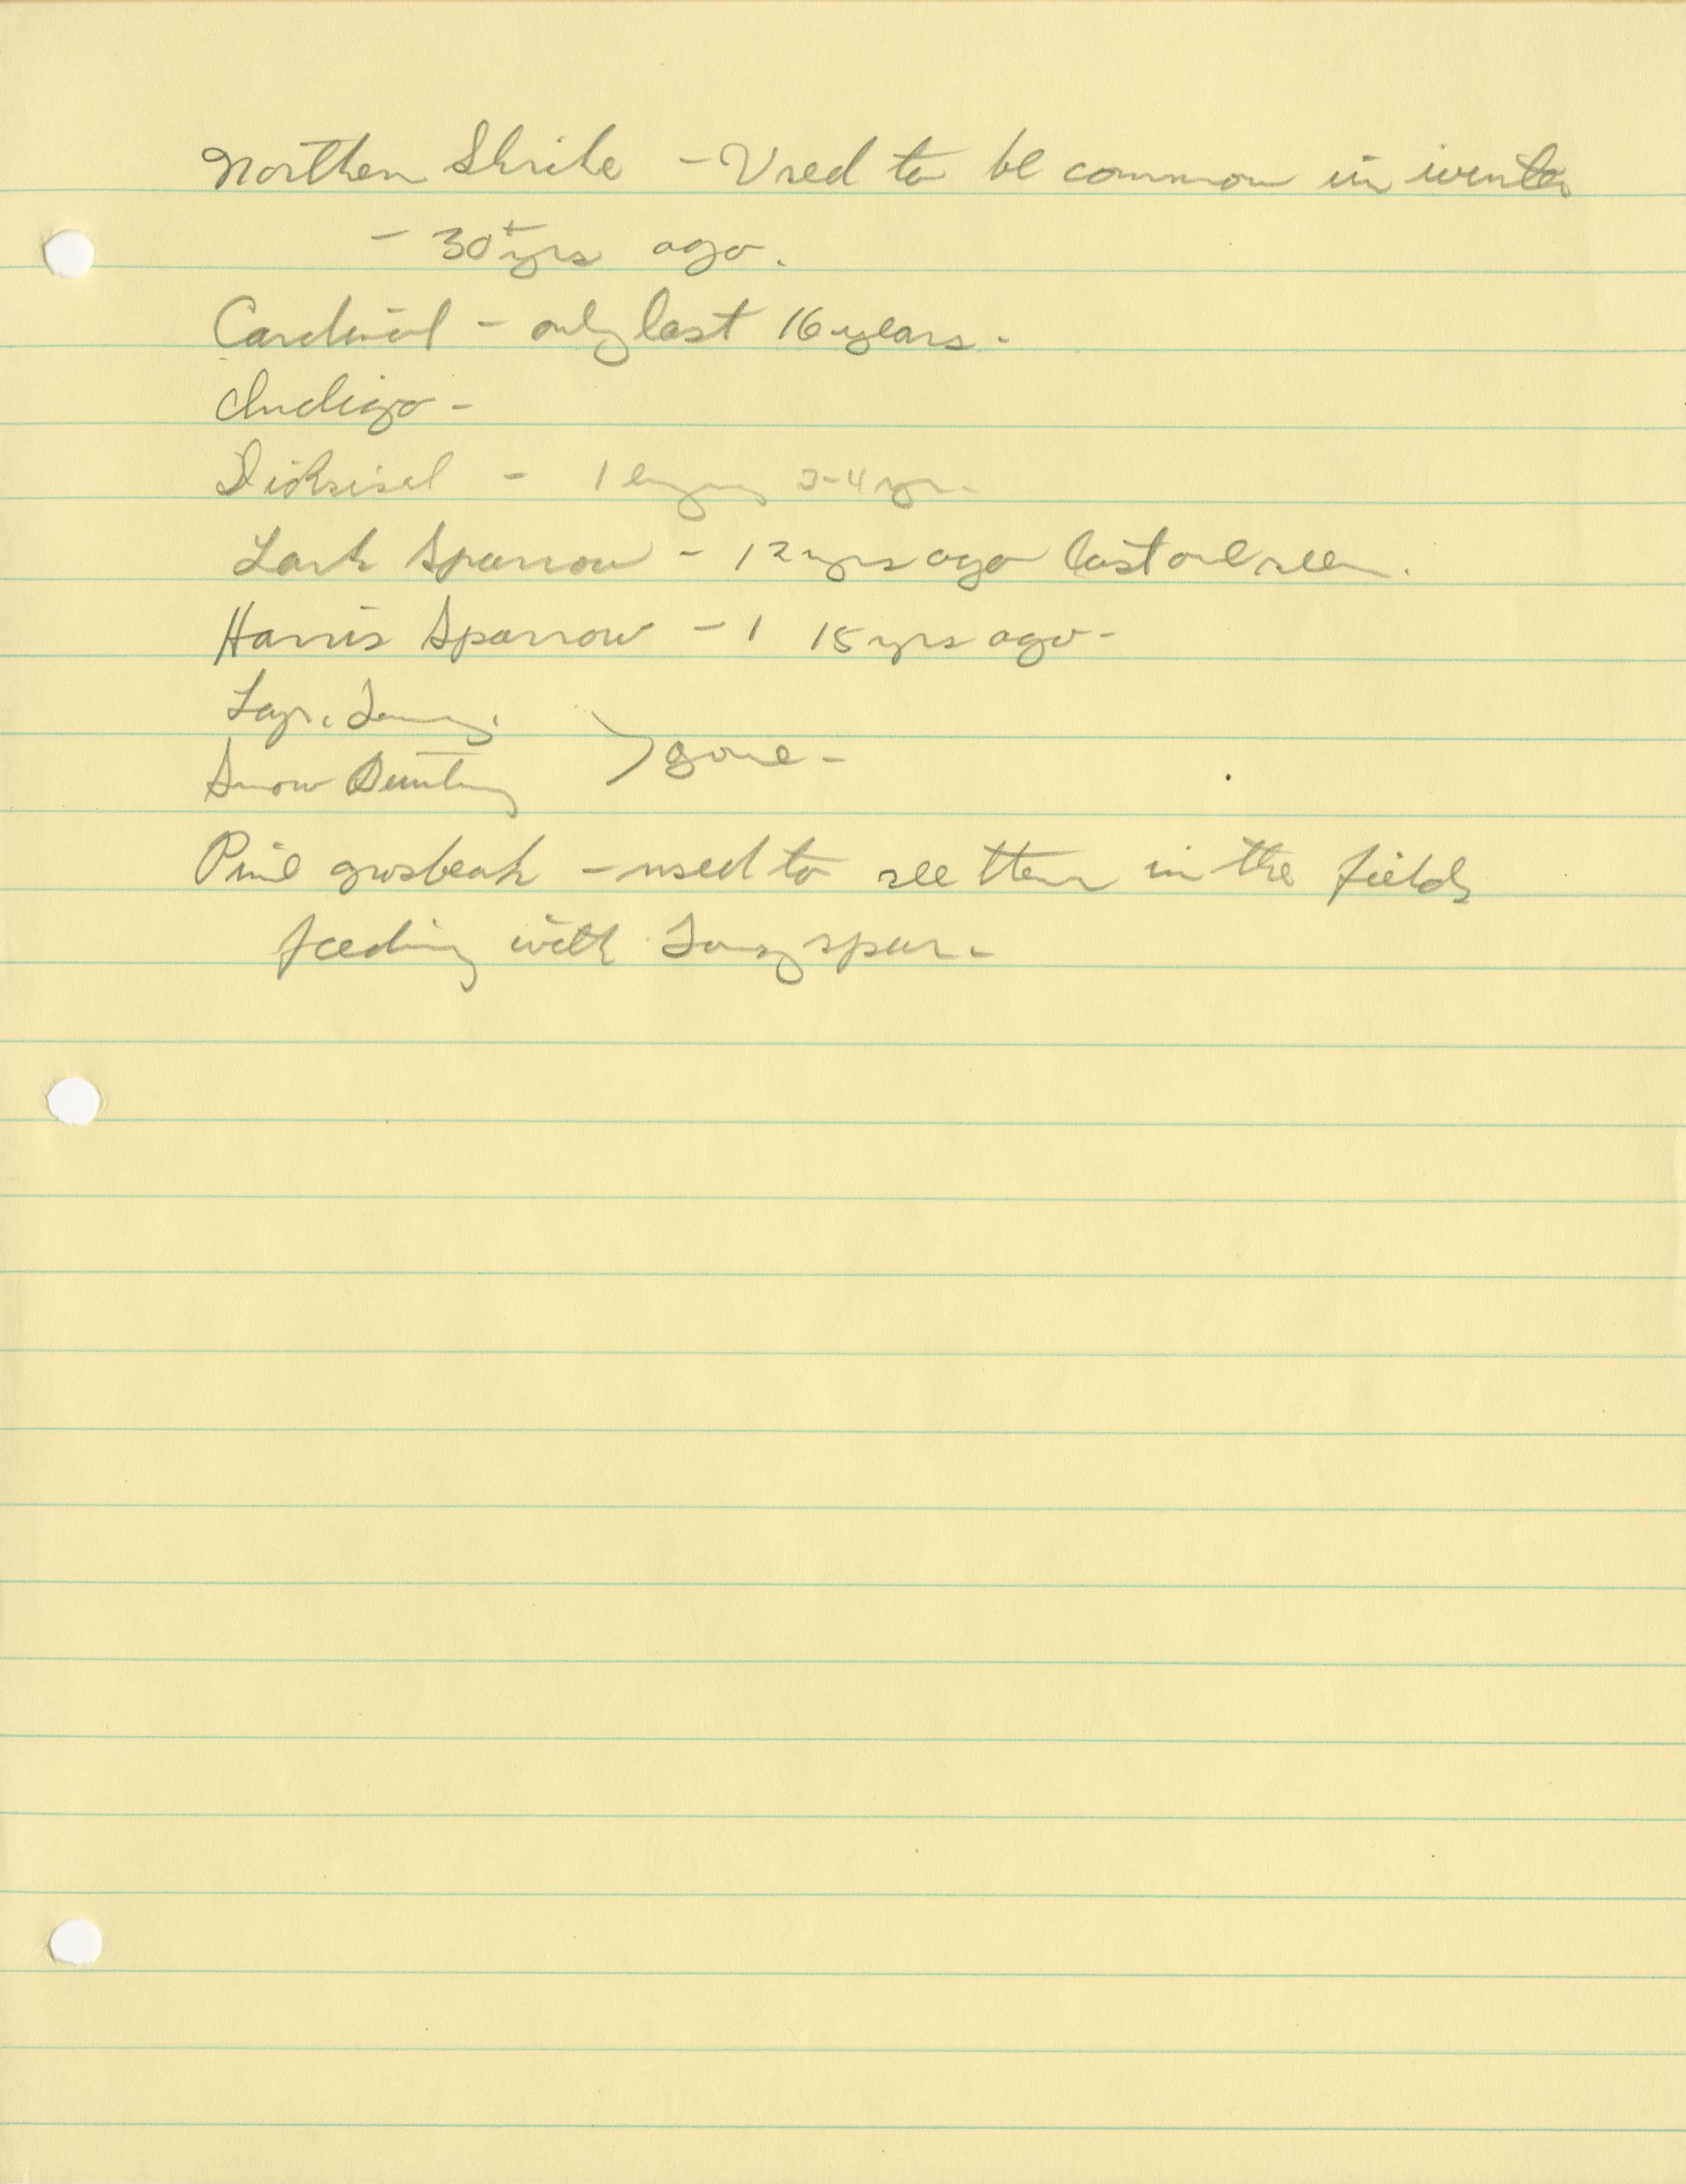 Northern Shrike - Used to be common in winter
- 30+ yrs ago.
Cardinal - only last 16 years.
Indigo -
Dickcissel - 1 every 3-4 yrs.
Lark Sparrow - 12 yrs ago last one seen.
Harris Sparrow - 1 15 yrs ago -
Lap. Long.
Snow Bunting > gone -
Pine grosbeak - used to see them in the fields
feeding with Longspur -